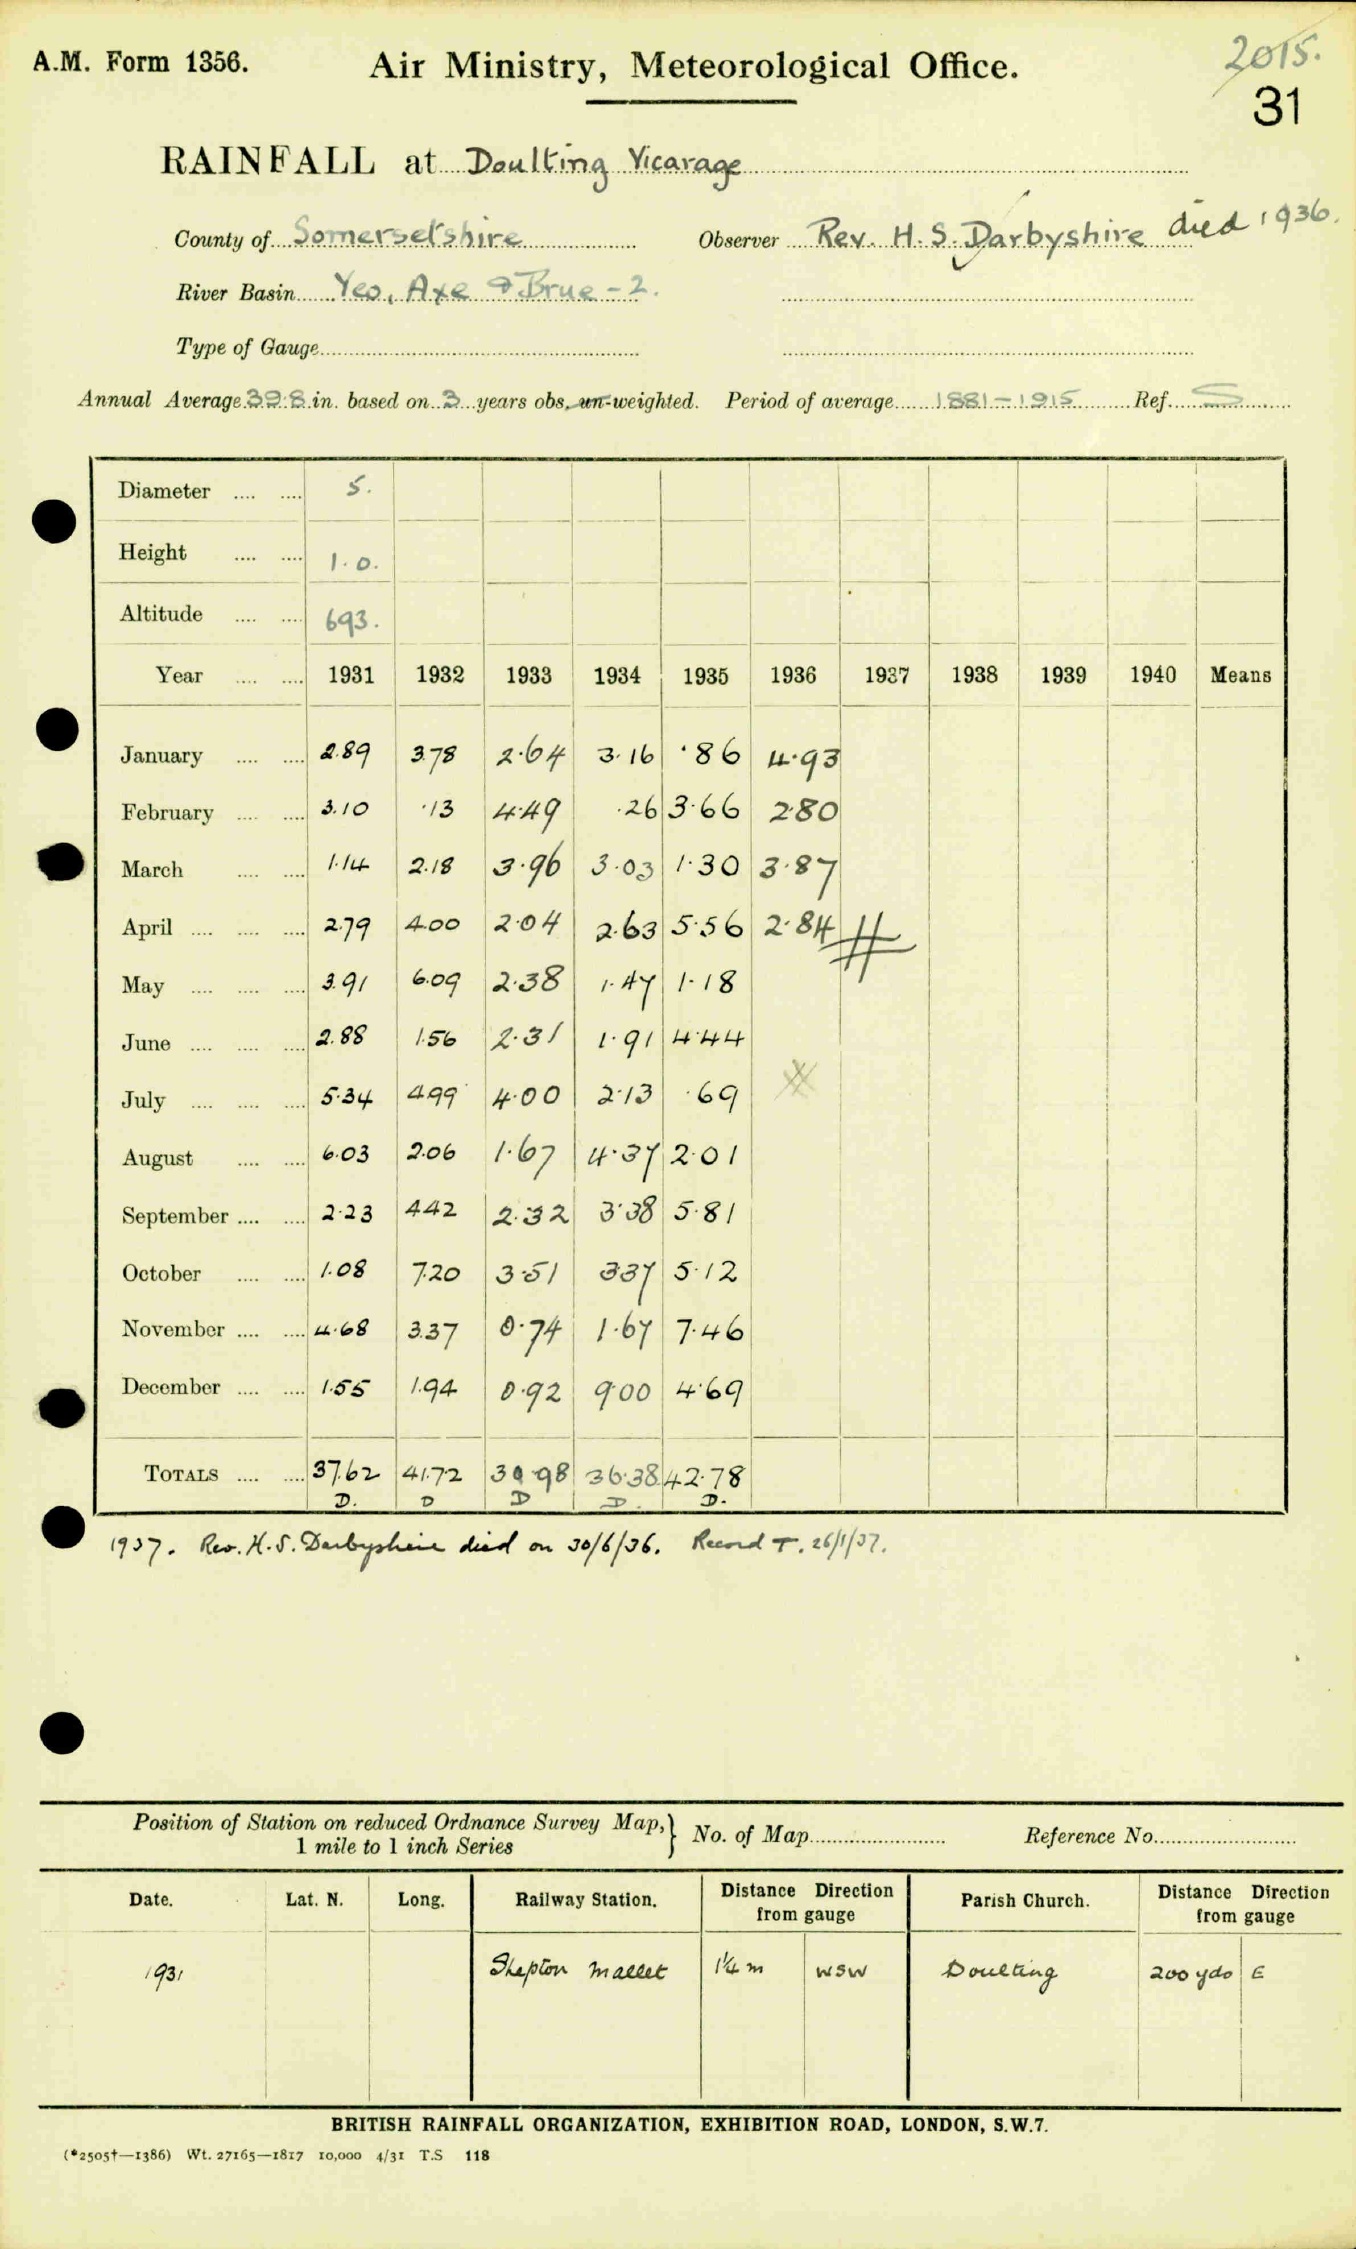 A.M. Form 1356. Air Ministry, Meteorological Office. 2015.
31
RAINFALL at Doulting Vicarage
County of Somersetshire Observer Rev. H. S. Darbyshire died 1936.
River Basin Yeo, Axe & Brue - 2.
Type of Gauge
Annual Average 39.8 in. based on 3 years obs. un-weighted. Period of average 1881-1915 Ref. S
Diameter 5.
Height 1.0.
Altitude 693.
Year 1931 1932 1933 1934 1935 1936 1937 1938 1939 1940 Means
January 2.89 3.78 2.64 3.16 .86 4.93
February 3.10 .13 4.49 .26 3.66 2.80
March 1.14 2.18 3.96 3.03 1.30 3.87
April 2.79 4.00 2.04 2.63 5.56 2.84
May 3.91 6.09 2.38 1.47 1.18
June 2.88 1.56 2.31 1.91 4.44
July 5.34 4.99 4.00 2.13 .69
August 6.03 2.06 1.67 4.37 2.01
September 2.23 4.42 2.32 3.38 5.81
October 1.08 7.20 3.51 3.37 5.12
November 4.68 3.37 0.74 1.67 7.46
December 1.55 1.94 0.92 9.00 4.69
TOTALS 37.62 41.72 30.98 36.38 42.78
D. D D D. D.
1937. Rev. H. S. Darbyshire died on 30/6/36. Record T. 26/1/37.
Position of Station on reduced Ordnance Survey Map, } No. of Map Reference No.
1 mile to 1 inch Series
Date. Lat. N. Long. Railway Station. Distance Direction from gauge Parish Church. Distance Direction from gauge
1931 Shepton Mallet 1¼ m WSW Doulting 200 yds E
BRITISH RAINFALL ORGANIZATION, EXHIBITION ROAD, LONDON, S.W.7.
(*2505†—1386) Wt. 27165—1817 10,000 4/31 T.S 118